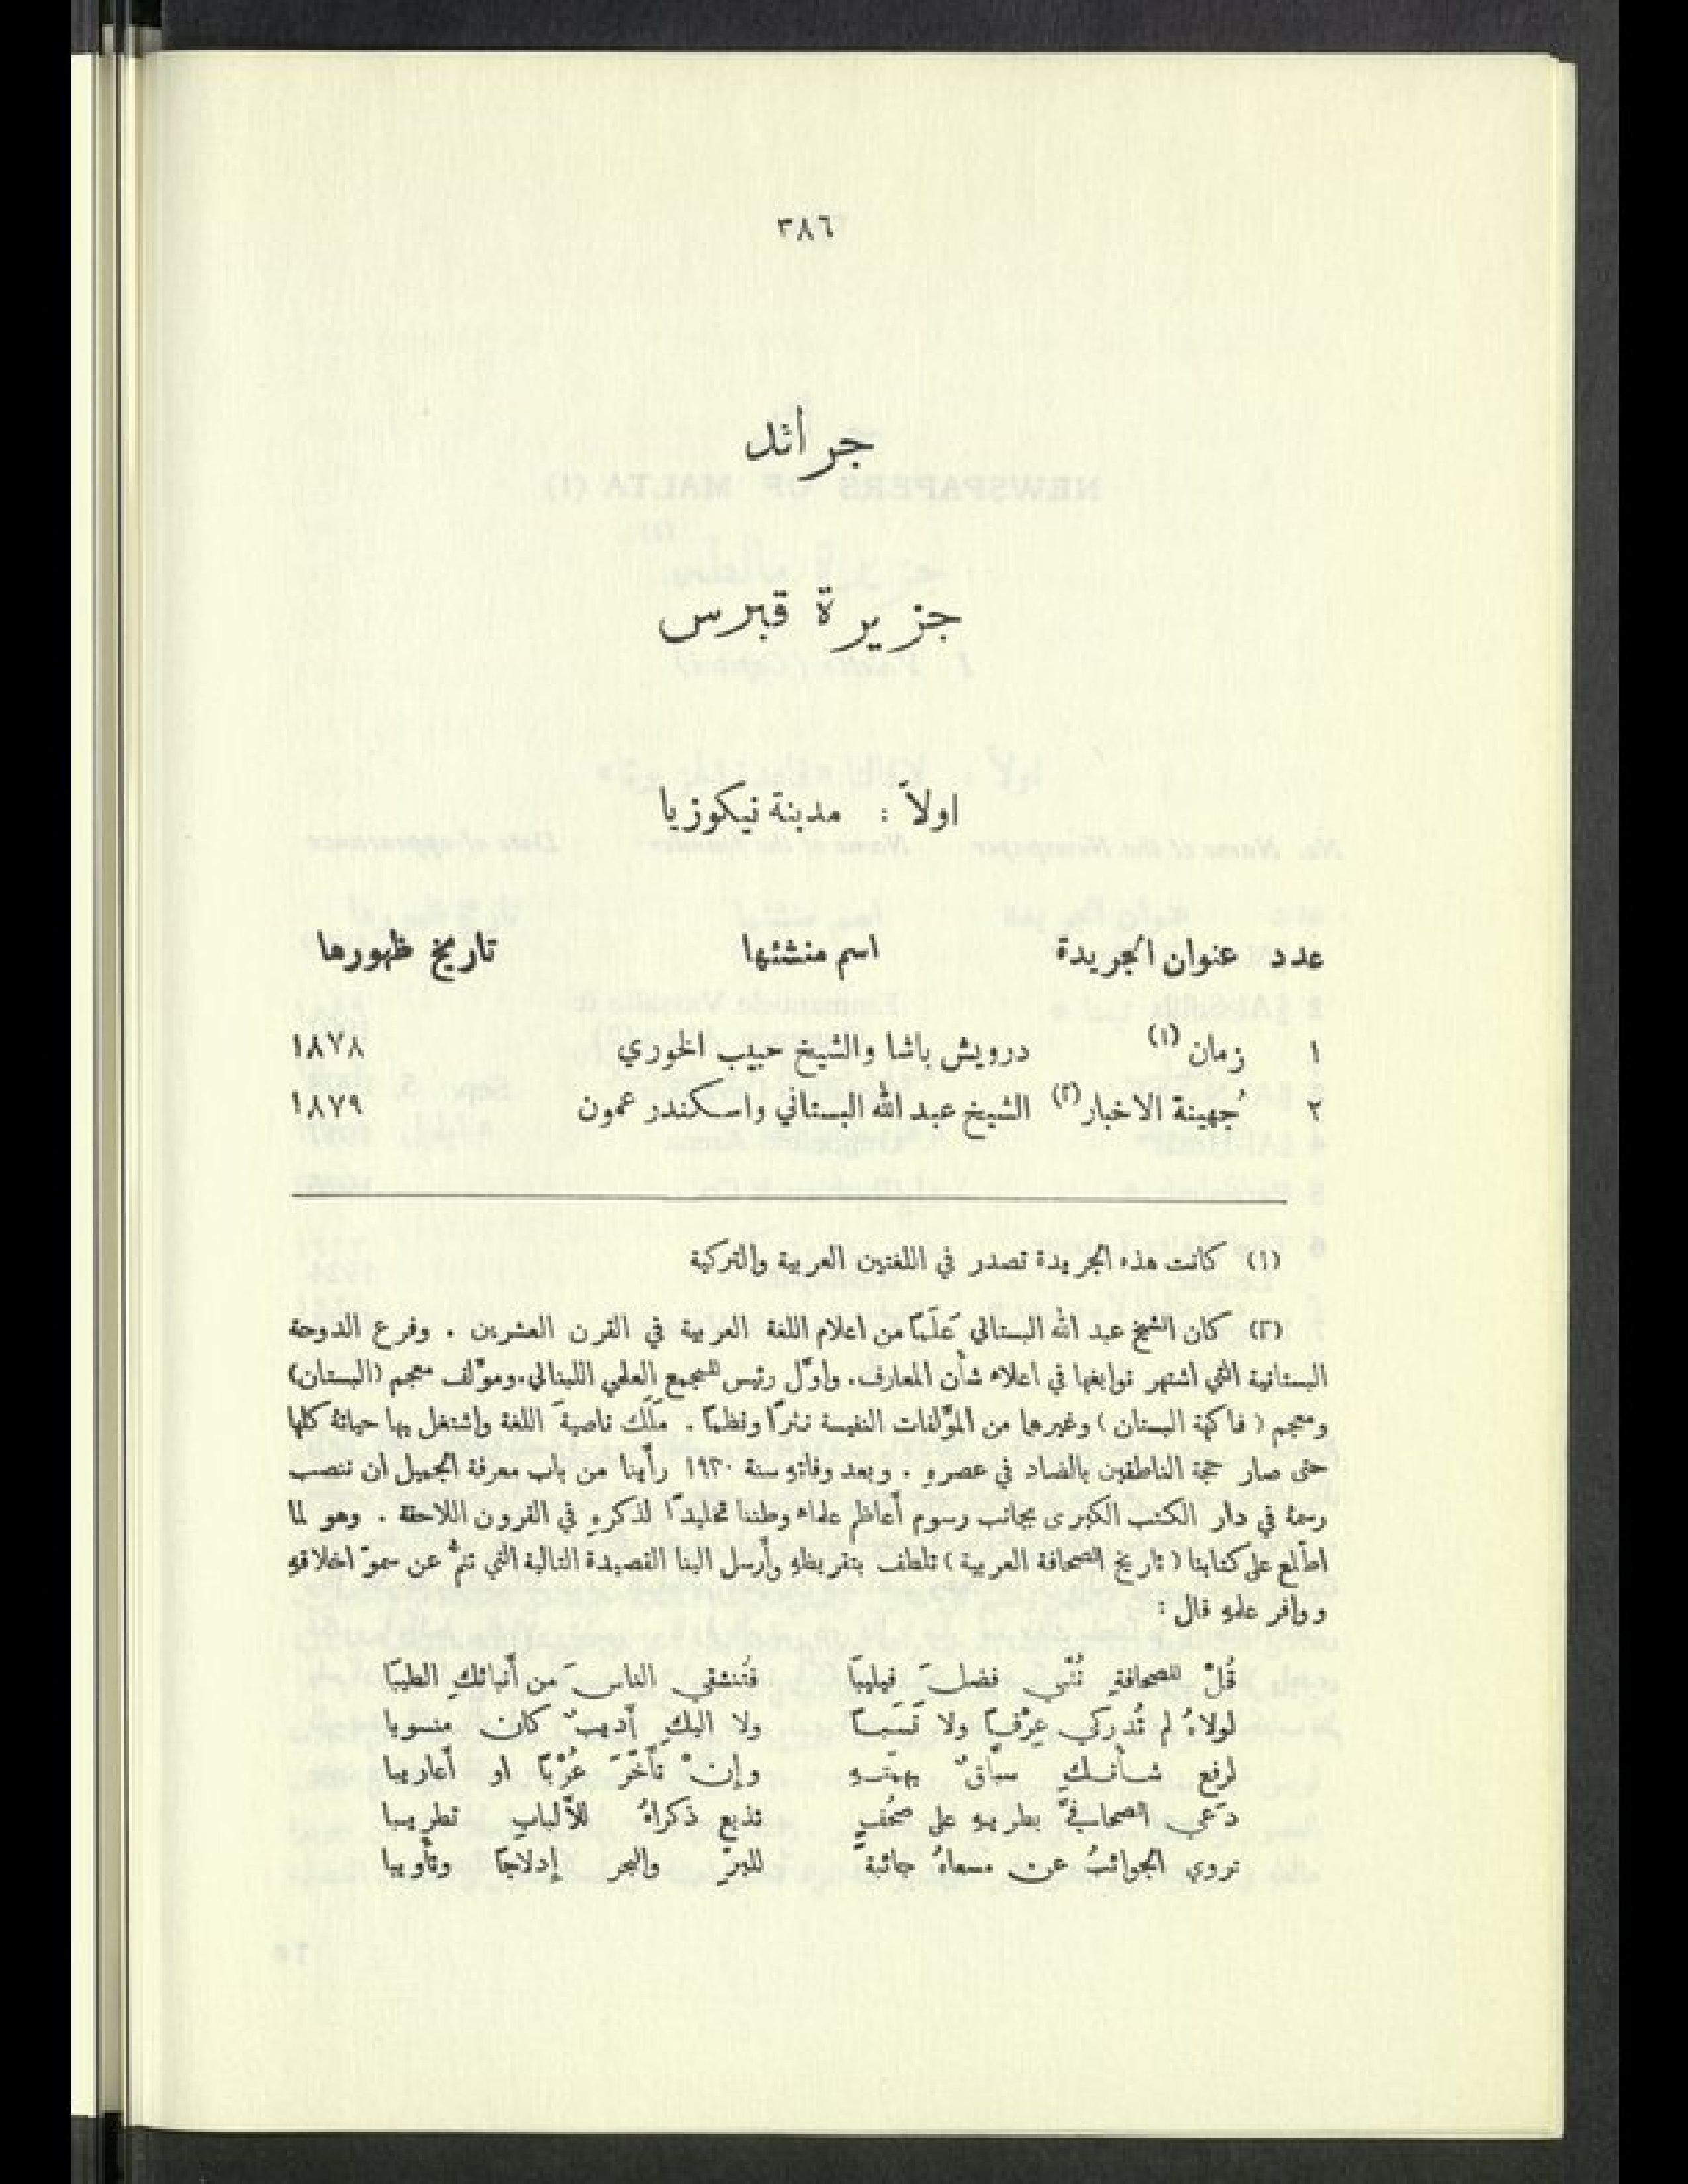 ٣٨٦
جرائد
جزيرة قبرس
اولاً : مدينة نيكوزيا
عدد عنوان الجريدة اسم منشئها تاريخ ظهورها
١ زمان (١) درويش باشا والشيخ حبيب الخوري ١٨٧٨
٢ جُهينة الاخبار (٢) الشيخ عبد الله البستاني واسكندر عمون ١٨٧٩
(١) كانت هذه الجريدة تصدر في اللغتين العربية والتركية
(٢) كان الشيخ عبد الله البستاني عَلَمًا من اعلام اللغة العربية في القرن العشرين . وفرع الدوحة
البستانية التي اشتهر نوابغها في اعلاء شأن المعارف. واوّل رئيس للمجمع العلمي اللبناني. ومؤلف معجم (البستان)
ومعجم (فاكهة البستان) وغيرهما من المؤلفات النفيسة نثرًا ونظمًا . ملَك ناصيةَ اللغة واشتغل بها حياتهُ كلها
حتى صار حجة الناطقين بالضاد في عصرهِ . وبعد وفاتهِ سنة ١٩٣٠ رأينا من باب معرفة الجميل ان ننصب
رسمهُ في دار الكتب الكبرى بجانب رسوم أعاظم علماء وطننا تخليدًا لذكرهِ في القرون اللاحقة . وهو لما
اطّلع على كتابنا (تاريخ الصحافة العربية) تلطف بتقريظهِ وأرسل الينا القصيدة التالية التي تنمُّ عن سموّ اخلاقهِ
ووافر علمهِ قال :
قُلْ للصحافةِ نُثّي فضلَ فيليبَا فتُنشقي الناسَ من أنبائكِ الطيبَا
لولاهُ لم تُدركي عِرْقًا ولا نَسَبًا ولا اليكِ أديبٌ كان منسوبا
لرفع شأنكِ سبّاقٌ بهمّتهِ وإنْ تأخّرَ عُرْبًا او أعاريبا
دَعي الصحافيَّ بطريهِ على صُحُفٍ تذيع ذكراهُ للألبابِ تطريبا
تروي الجوائبُ عن مسعاهُ جائبةً للبرّ والبحر إدلاجًا وتأويبا